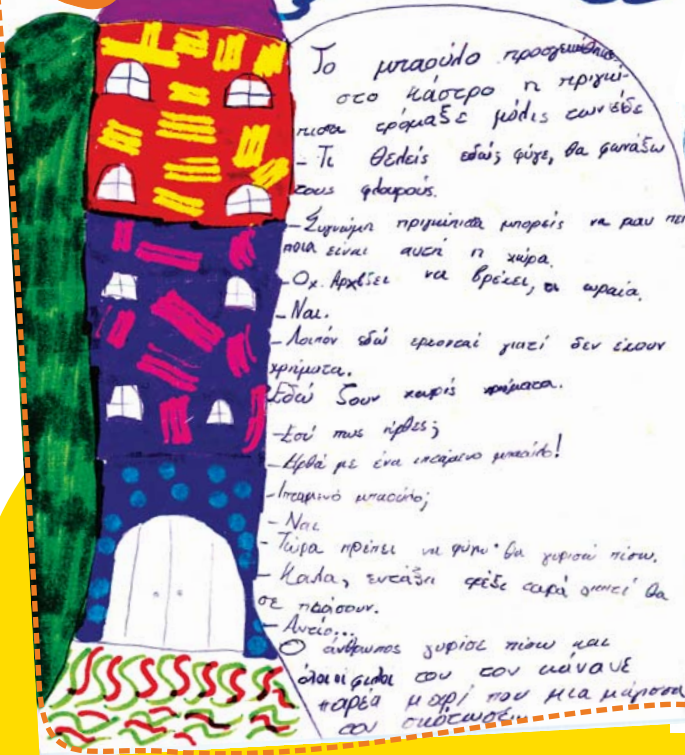 Το μπαούλο προσγειώθηκε
στο κάστρο η πριγκί-
πισα τρόμαξε μόλις τον είδε
- Τι θέλεις εδώ; φύγε, θα φωνάξω
τους φλουρούς.
- Συγνώμη πριγκίπισα μπορείς να μου πεις
ποια είναι αυτή η χώρα.
- Οχ. Αρχίζει να βρέχει, τι ωραία.
- Ναι.
- Λοιπόν εδώ έρχονται γιατί δεν έχουν
χρήματα.
Εδώ ζουν χωρίς χρήματα.
- Εσύ πως ήρθες;
- Ηρθα με ένα ιπτάμενο μπαούλο!
- Ιπταμενό μπαούλο;
- Ναι
- Τώρα πρέπει να φύγω· θα γυρίσω πίσω.
- Καλα, εντάξει φεύγε τωρά γιατί θα
σε πιάσουν.
- Αντίο...
Ο άνθρωπος γυρίσε πίσω και
όλοι οι φιλοι του τον κάνανε
παρέα μεχρί που μια μάγισσα
τον σκότωσε..